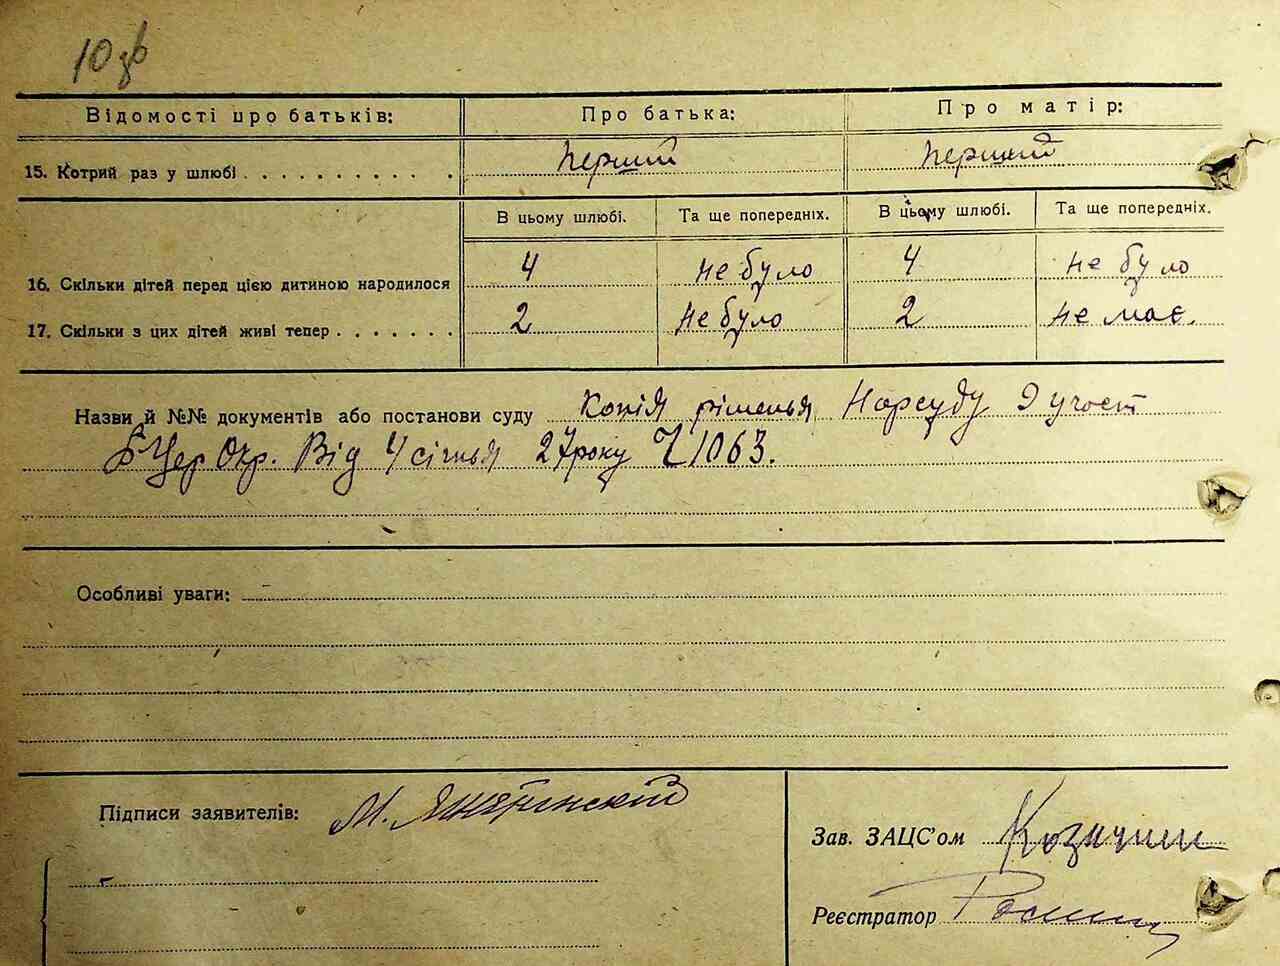 10 зв
Відомості про батьків: Про батька: Про матір:
15. Котрий раз у шлюбі . . . . . . . . . . . перший перший
В цьому шлюбі. Та ще попередніх. В цьому шлюбі. Та ще попередніх.
16. Скільки дітей перед цією дитиною народилося 4 не було 4 не було
17. Скільки з цих дітей живі тепер . . . . . . . 2 не було 2 не має.
Назви й №№ документів або постанови суду Копія рішенья Нарсуду 9 участ
БЦер Окр. Від 4 січнья 27 року Ч 1063.
Особливі уваги:
Підписи заявителів: М.
Зав. ЗАЦС'ом
Реєстратор